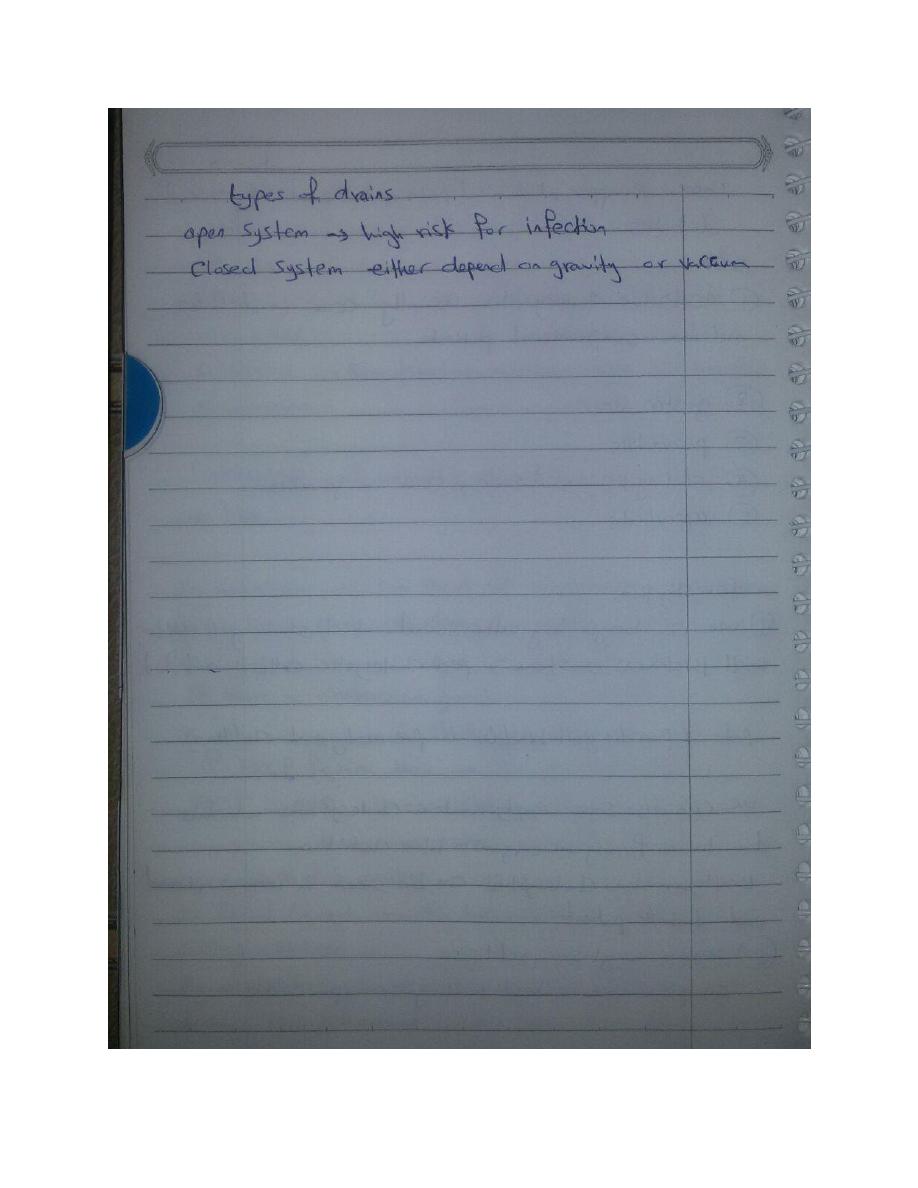 types of drains
open system → high risk for infection
Closed system either depend on gravity or vaccum